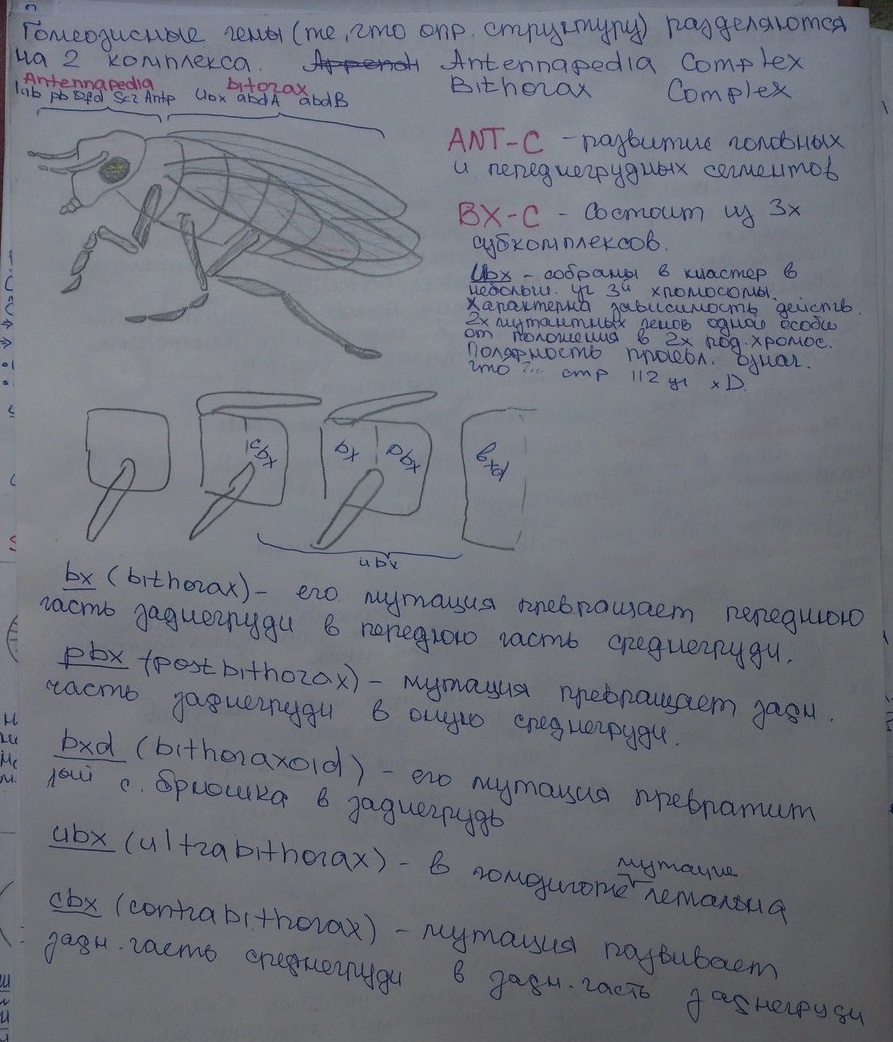 Гомеозисные гены (те, что опр. структуру) разделяются
на 2 комплекса. Append Antennapedia Complex
Bithorax Complex
Antennapedia bitorax
lab pb Dfd Scr Antp Ubx abdA abdB
ANT-C - развитие головных
и переднегрудных сегментов
BX-C - состоит из 3х
субкомплексов.
Ubx - собраны в кластер в
небольш. уч 3й хромосомы.
Характерна зависимость действ.
2х мутантных генов одной особи
от положения в 2х род. хромос.
Полярность проявл. означ.
что ?... стр 112 уч х D.
cbx bx pbx bxd
ubx
bx (bithorax) - его мутация превращает переднюю
часть заднегруди в передюю часть среднегруди.
pbx (postbithorax) - мутация превращает задн.
часть заднегруди в оную среднегруди.
bxd (bithoraxoid) - его мутация превратит
1ый с. брюшка в заднегрудь
ubx (ultrabithorax) - в гомозиготе мутация летальна
cbx (contrabithorax) - мутация развивает
задн. часть среднегруди в задн. часть заднегруди